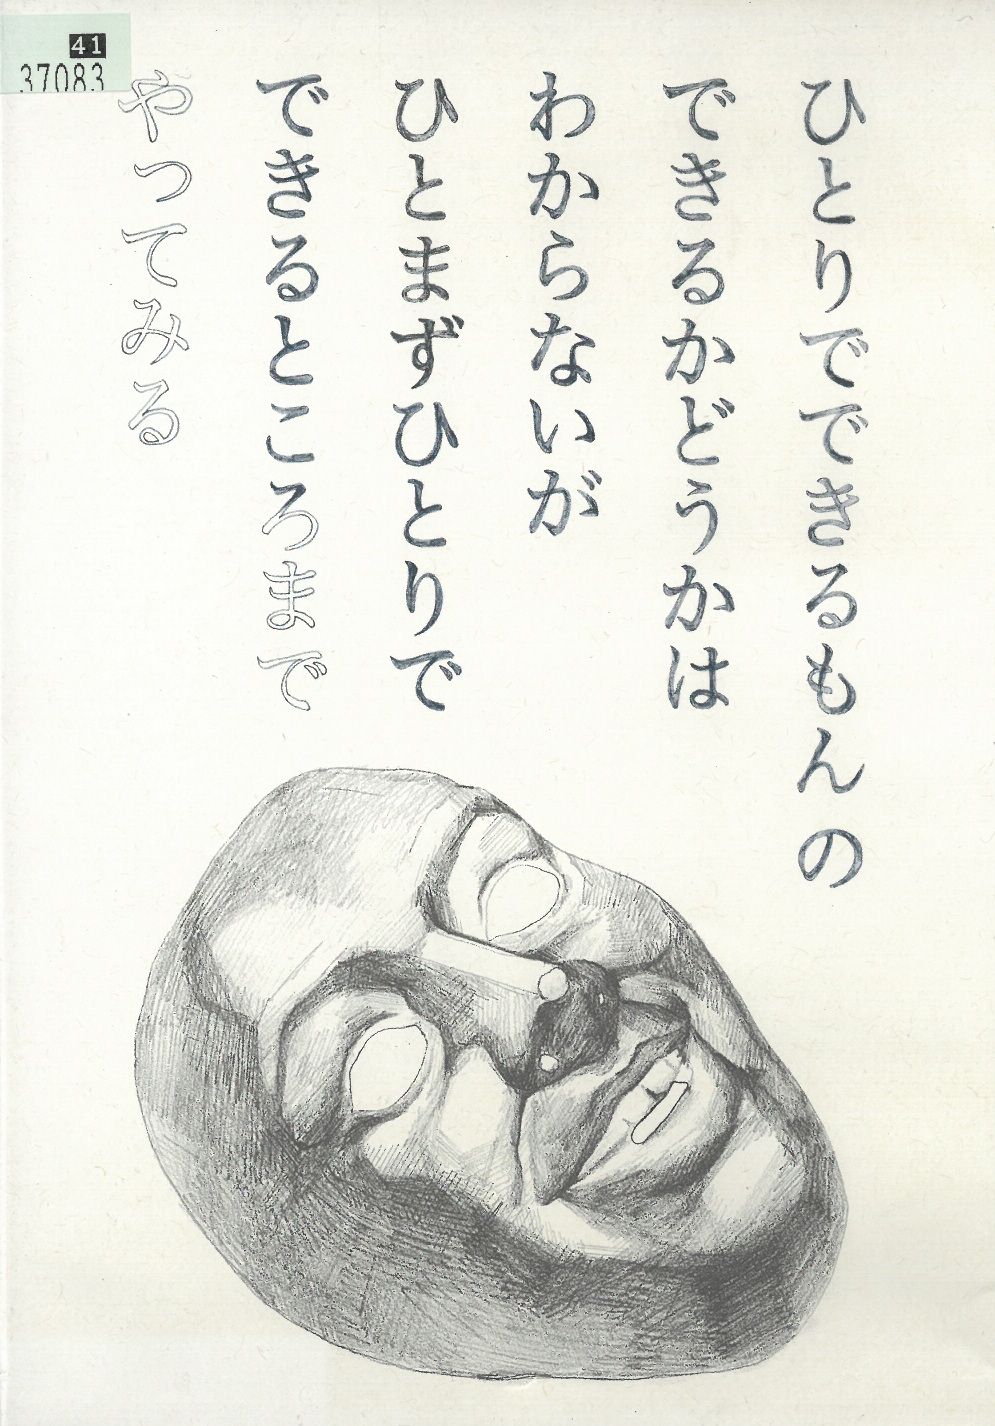 ひとりでできるもんの
できるかどうかは
わからないが
ひとまずひとりで
できるところまで
やってみる
41
37083